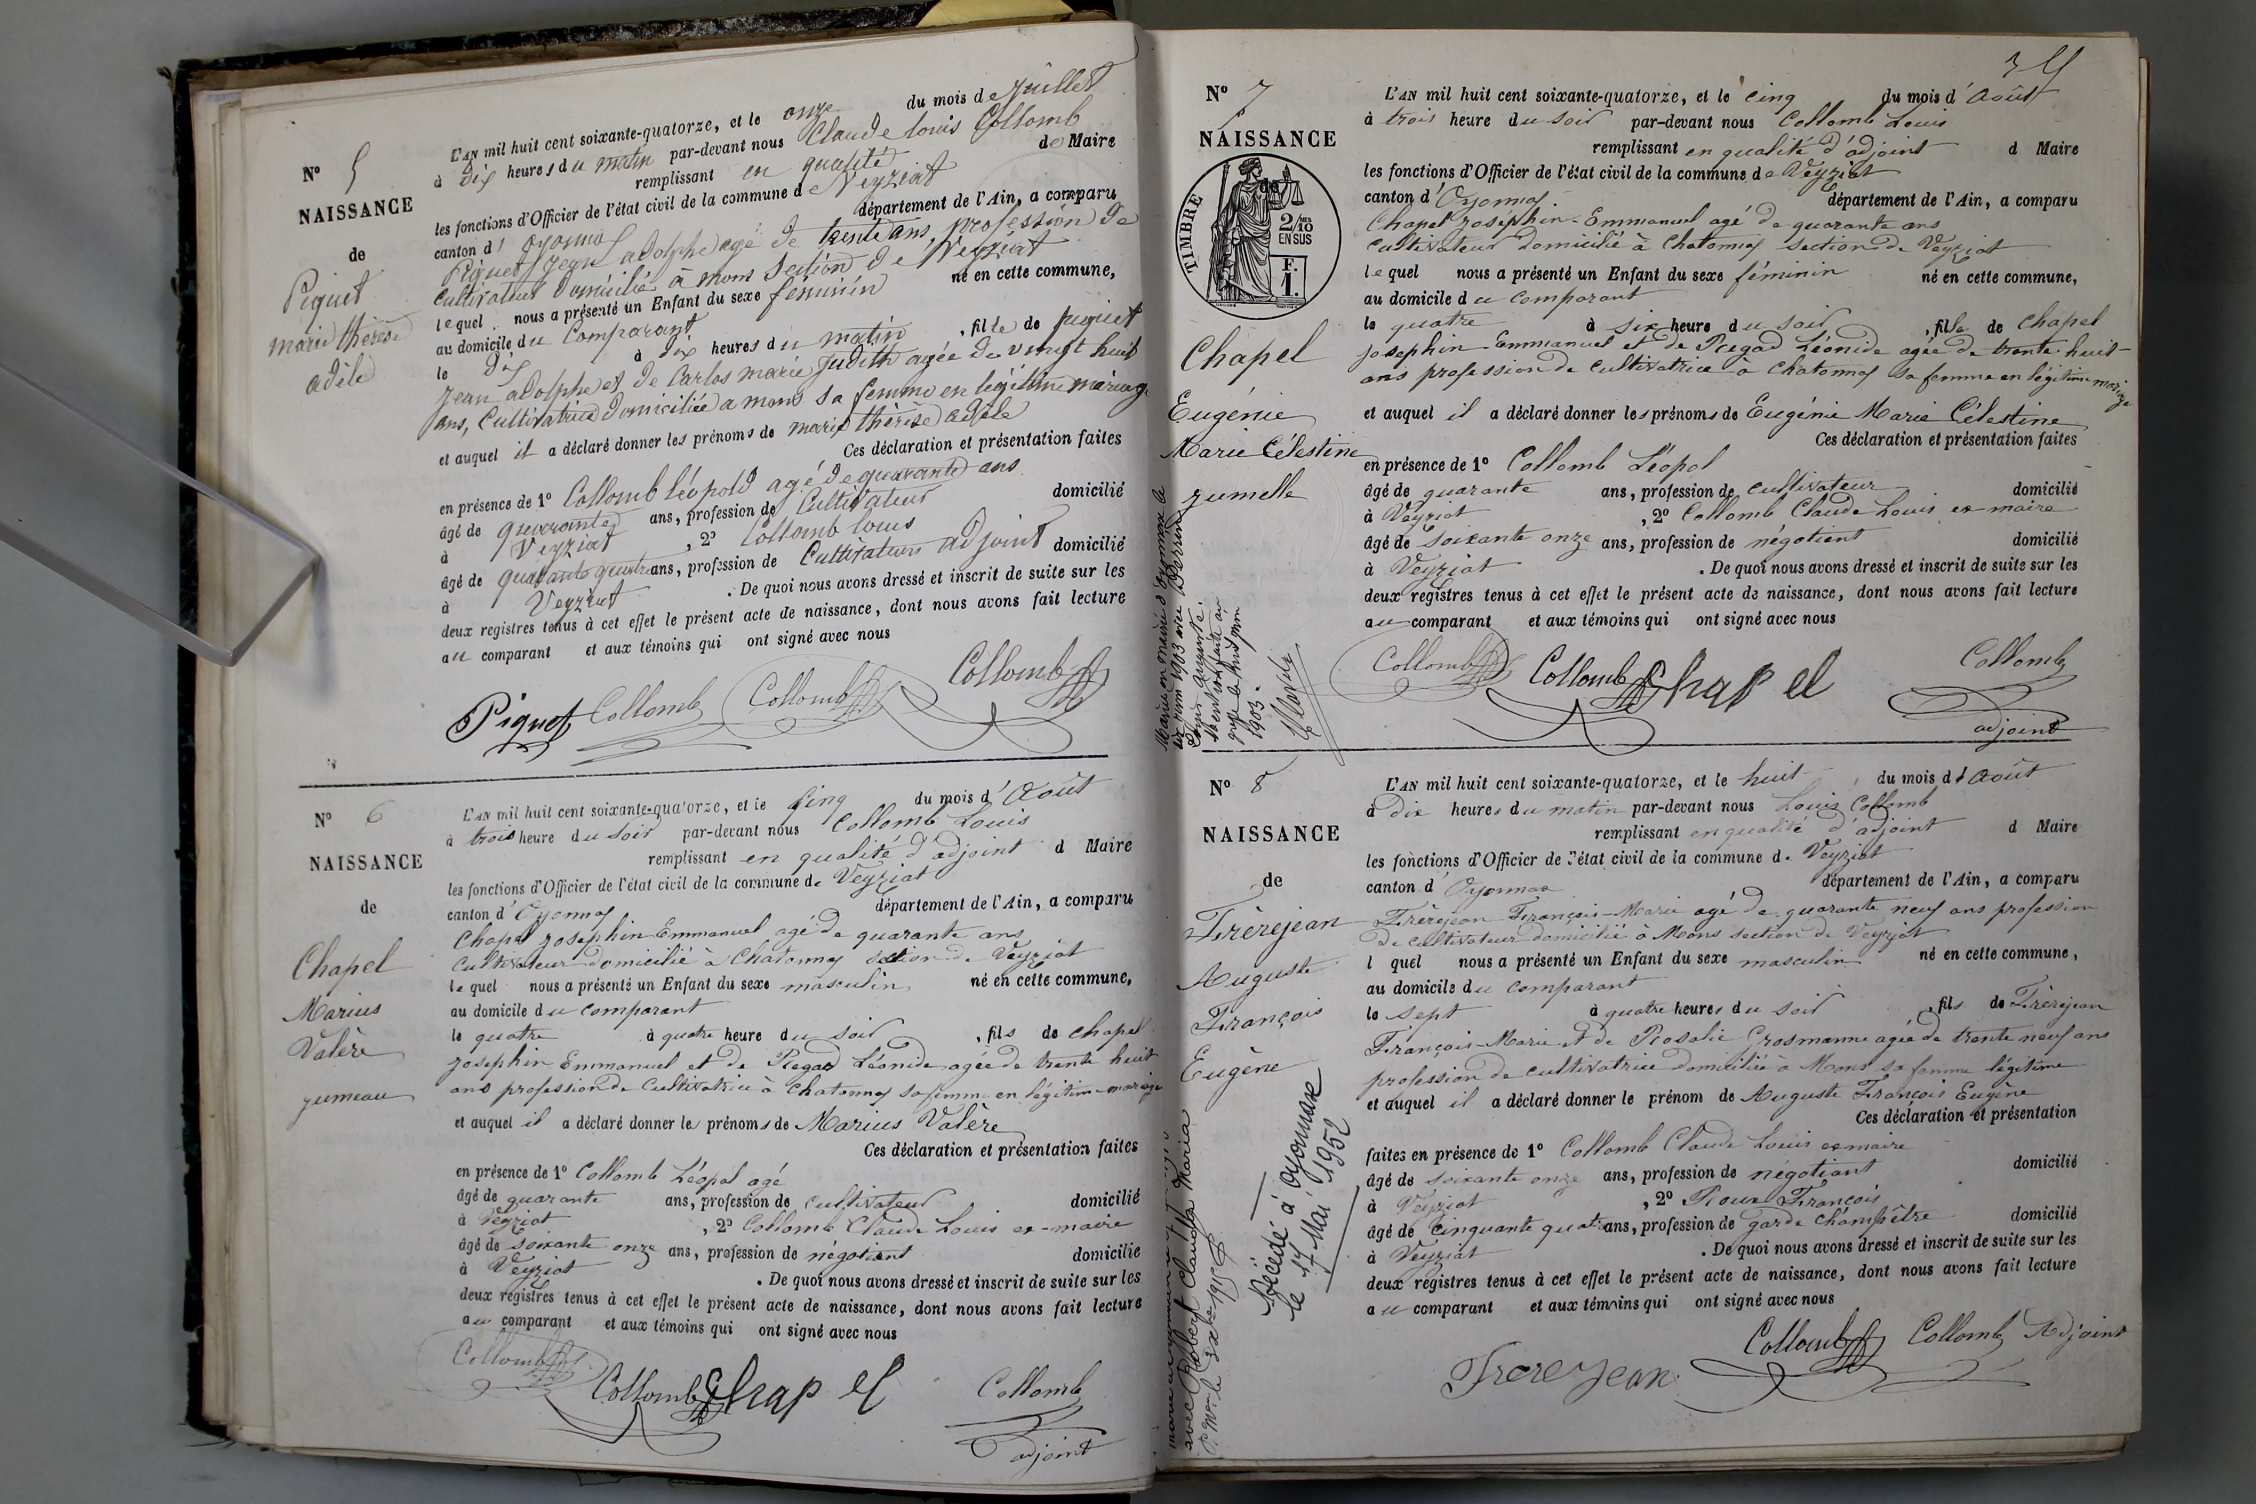 N° 5
NAISSANCE
de
Piquet
marie thérèse
adèle
L'AN mil huit cent soixante-quatorze, et le onze du mois de Juillet
à dix heures du matin par-devant nous Claude Louis Collomb
remplissant en qualité de Maire
les fonctions d'Officier de l'état civil de la commune de Veyziat
canton d'Oyonnax département de l'Ain, a comparu
Piquet Jean adolphe agé de trente ans, profession de
cultivateur domicilié à mons section de Veyziat
lequel nous a présenté un Enfant du sexe féminin né en cette commune,
au domicile du Comparant
le dix à dix heures du matin, fille de piquet
Jean adolphe et de Carlos marie Judith agée de vingt huit
ans, Cultivatrice domiciliée a mons sa femme en légitime mariage
et auquel il a déclaré donner les prénoms de marie thérèse adèle
Ces déclaration et présentation faites
en présence de 1° Collomb léopold agé de quarante ans
âgé de quarante ans, profession de Cultivateur domicilié
à Veyziat, 2° Collomb louis
âgé de quarante quatre ans, profession de Cultivateur adjoint domicilié
à Veyziat. De quoi nous avons dressé et inscrit de suite sur les
deux registres tenus à cet effet le présent acte de naissance, dont nous avons fait lecture
au comparant et aux témoins qui ont signé avec nous
Piquet Collomb Collomb Collomb
N° 6
NAISSANCE
de
Chapel
Marius
Valère
jumeau
L'AN mil huit cent soixante-quatorze, et le cinq du mois d'Août
à trois heure du soir par-devant nous Collomb Louis
remplissant en qualité d'adjoint d Maire
les fonctions d'Officier de l'état civil de la commune de Veyziat
canton d'Oyonnax département de l'Ain, a comparu
Chapel Joséphin Emmanuel agé de quarante ans
cultivateur domicilié à Chatonnax section de Veyziat
lequel nous a présenté un Enfant du sexe masculin né en cette commune,
au domicile du comparant
le quatre à quatre heure du soir, fils de Chapel
Joséphin Emmanuel et de Regad Léonide agée de trente huit
ans profession de Cultivatrice à Chatonnax sa femme en légitime mariage
et auquel il a déclaré donner les prénoms de Marius Valère
Ces déclaration et présentation faites
en présence de 1° Collomb Léopol agé
âgé de quarante ans, profession de cultivateur domicilié
à Veyziat, 2° Collomb Claude Louis ex-maire
âgé de soixante onze ans, profession de négotiant domicilié
à Veyziat. De quoi nous avons dressé et inscrit de suite sur les
deux registres tenus à cet effet le présent acte de naissance, dont nous avons fait lecture
au comparant et aux témoins qui ont signé avec nous
Collomb Collomb Chapel Collomb
adjoint
N° 7
NAISSANCE
de
TIMBRE
2/10
EN SUS
F.
1.
Chapel
Eugénie
Marie Célestine
jumelle
1903 Perrin
1903.
L'AN mil huit cent soixante-quatorze, et le cinq du mois d'Août
à trois heure du soir par-devant nous Collomb Louis
remplissant en qualité d'adjoint d Maire
les fonctions d'Officier de l'état civil de la commune de Veyziat
canton d'Oyonnax département de l'Ain, a comparu
Chapel Joséphin-Emmanuel agé de quarante ans
cultivateur domicilié à Chatonnax section de Veyziat
lequel nous a présenté un Enfant du sexe féminin né en cette commune,
au domicile du comparant
le quatre à six heure du soir, fille de Chapel
Josephin Emmanuel et de Regad Léonide agée de trente-huit
ans profession de cultivatrice à Chatonnax sa femme en légitime mariage
et auquel il a déclaré donner les prénoms de Eugénie Marie Célestine
Ces déclaration et présentation faites
en présence de 1° Collomb Léopol
âgé de quarante ans, profession de cultivateur domicilié
à Veyziat, 2° Collomb Claude Louis ex-maire
âgé de soixante onze ans, profession de négotiant domicilié
à Veyziat. De quoi nous avons dressé et inscrit de suite sur les
deux registres tenus à cet effet le présent acte de naissance, dont nous avons fait lecture
au comparant et aux témoins qui ont signé avec nous
Collomb Collomb Chapel Collomb
adjoint
N° 8
NAISSANCE
de
Frèrejean
Auguste
François
Eugène
Décédé à Oyonnax
le 17 Mai 1952
avec Robert Claudia Maria
L'AN mil huit cent soixante-quatorze, et le huit du mois d'Août
à dix heures du matin par-devant nous Louis Collomb
remplissant en qualité d'adjoint d Maire
les fonctions d'Officier de l'état civil de la commune de Veyziat
canton d'Oyonnax département de l'Ain, a comparu
Frèrejean François-Marie agé de quarante neuf ans profession
de cultivateur domicilié à Mons section de Veyziat
l quel nous a présenté un Enfant du sexe masculin né en cette commune,
au domicile du comparant
le sept à quatre heures du soir, fils de Frèrejean
François-Marie et de Rosalie Grosmanne agée de trente neuf ans
profession de cultivatrice domiciliée à Mons sa femme légitime
et auquel il a déclaré donner le prénom de Auguste François Eugène
Ces déclaration et présentation
faites en présence de 1° Collomb Claude Louis ex maire
âgé de soixante onze ans, profession de négotiant domicilié
à Veyziat, 2° Roux François
âgé de cinquante quatre ans, profession de garde champêtre domicilié
à Veyziat. De quoi nous avons dressé et inscrit de suite sur les
deux registres tenus à cet effet le présent acte de naissance, dont nous avons fait lecture
au comparant et aux témoins qui ont signé avec nous
Frerejean Collomb Collomb Adjoint